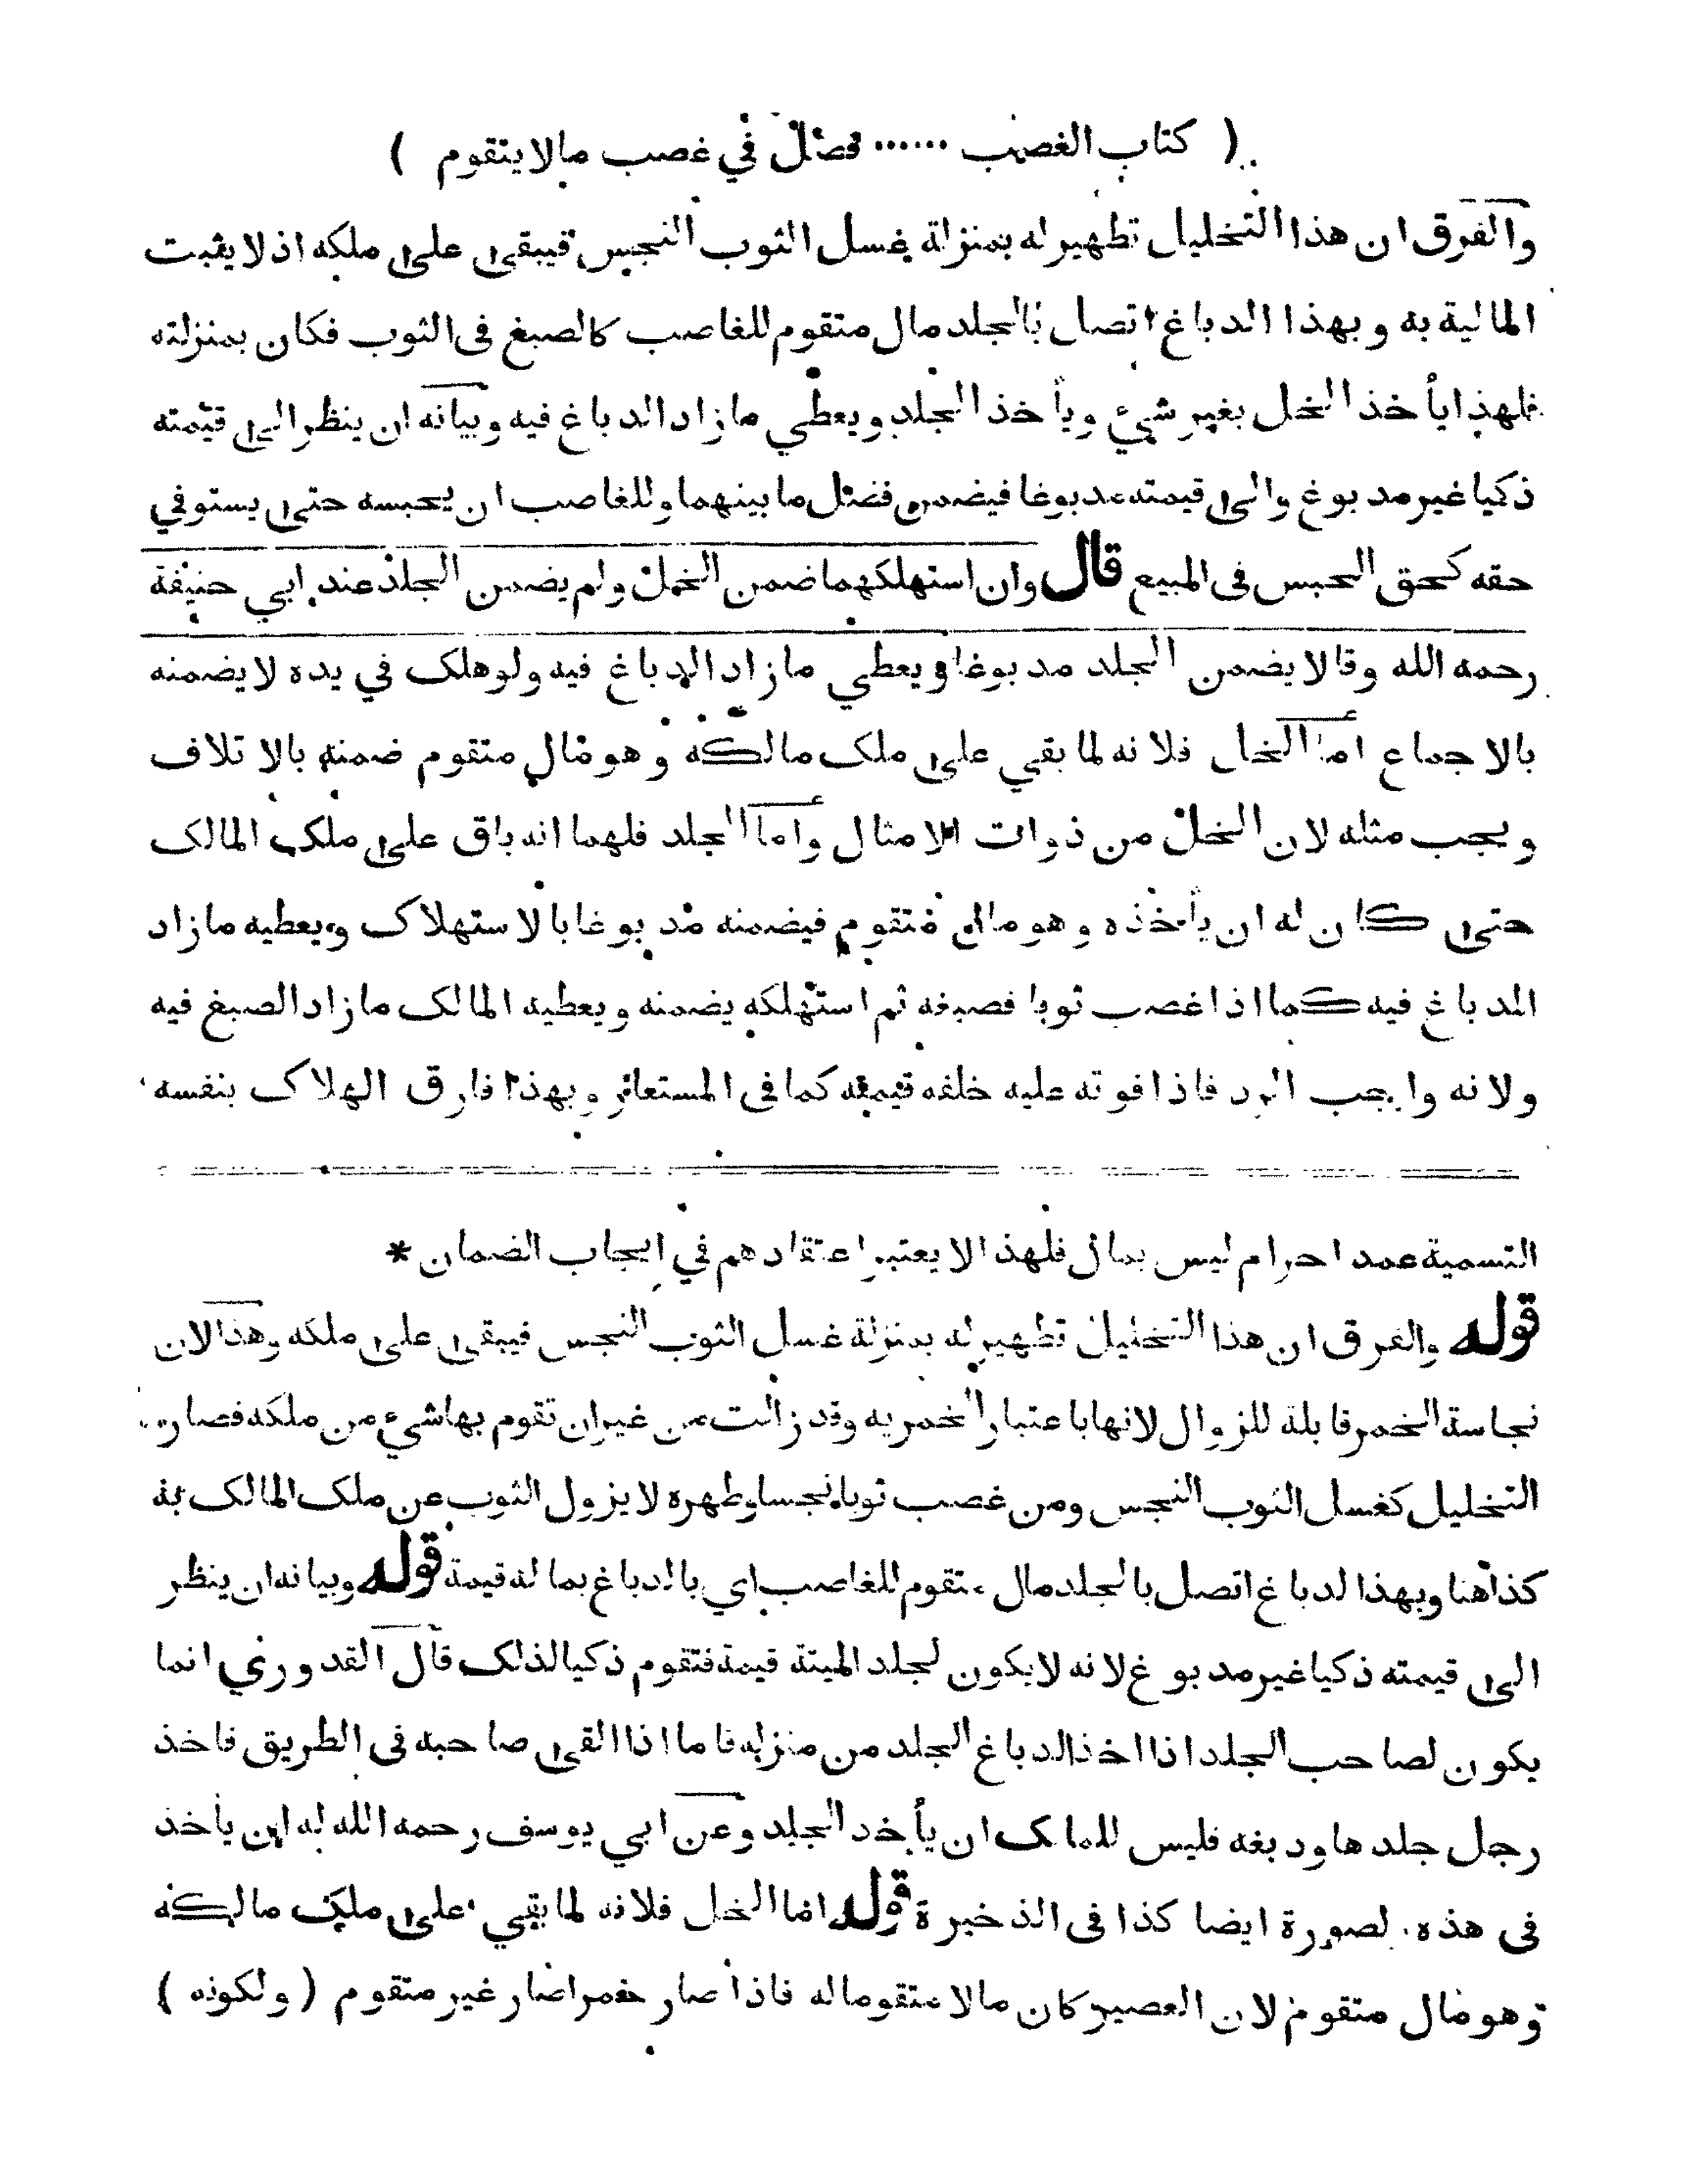 ( كتاب الغصب ...... فصل في غصب مالا يتقوم )
والفرق ان هذا التخليل تطهير له بمنزلة غسل الثوب النجس فيبقى على ملكه اذ لا يثبت
المالية به وبهذا الدباغ اتصل بالجلد مال متقوم للغاصب كالصبغ فى الثوب فكان بمنزلته
فلهذا يأخذ الخل بغير شيء ويأخذ الجلد ويعطي مازاد الدباغ فيه وبيانه ان ينظر الى قيمته
ذكيا غير مدبوغ والى قيمته مدبوغا فيضمن فضل ما بينهما وللغاصب ان يحبسه حتى يستوفي
حقه كحق الحبس فى المبيع قال وان استهلكهما ضمن الخل ولم يضمن الجلد عند ابي حنيفة
رحمه الله وقالا يضمن الجلد مدبوغا ويعطي مازاد الدباغ فيه ولو هلك في يده لا يضمنه
بالاجماع اما الخل فلانه لما بقي على ملك مالكه وهو مال متقوم ضمنه بالاتلاف
ويجب مثله لان الخل من ذوات الامثال واما الجلد فلهما انه باق على ملك المالك
حتى كان له ان يأخذه وهو مال متقوم فيضمنه مدبوغا بالاستهلاك ويعطيه مازاد
الدباغ فيه كما اذا غصب ثوبا فصبغه ثم استهلكه يضمنه ويعطيه المالك مازاد الصبغ فيه
ولانه واجب الرد فاذا فوته عليه خلفه قيمته كما فى المستعار وبهذا فارق الهلاك بنفسه
التسمية عمدا حرام ليس بمال فلهذا لا يعتبر اعتقادهم في ايجاب الضمان *
قوله والفرق ان هذا التخليل تطهير له بمنزلة غسل الثوب النجس فيبقى على ملكه وهذا لان
نجاسة الخمر قابلة للزوال لانها باعتبار الخمريه وقد زالت من غير ان تقوم بها شيء من ملكه فصار
التخليل كغسل الثوب النجس ومن غصب ثوبا نجسا وطهره لا يزول الثوب عن ملك المالك به
كذا هنا وبهذا لدباغ اتصل بالجلد مال متقوم للغاصب اي بالدباغ بما له قيمة قوله وبيانه ان ينظر
الى قيمته ذكيا غير مدبوغ لانه لا يكون لجلد الميتة قيمة فتقوم ذكيا لذلك قال القدوري انما
يكون لصاحب الجلد اذا اخذ الدباغ الجلد من منزله فاما اذا القى صاحبه فى الطريق فاخذ
رجل جلدها ودبغه فليس للمالك ان يأخذ الجلد وعن ابي يوسف رحمه الله له ان يأخذ
فى هذه لصورة ايضا كذا فى الذخيرة قوله اما الخل فلانه لما بقي على ملك مالكه
وهو مال متقوم لان العصير كان مالا متقوما له فاذا صار خمرا صار غير متقوم ( ولكونه )